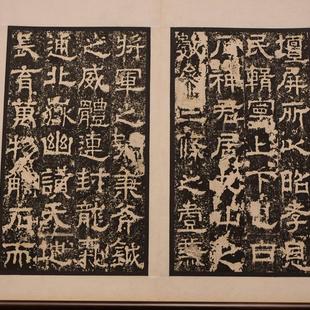 壇屏所以昭孝息
民輯寧上下也白
石神君居九山之
數參三條之壹兼
將軍之號秉斧鉞
之威體連封龍氣
通北嶽幽讚天地
長育萬物觸石而